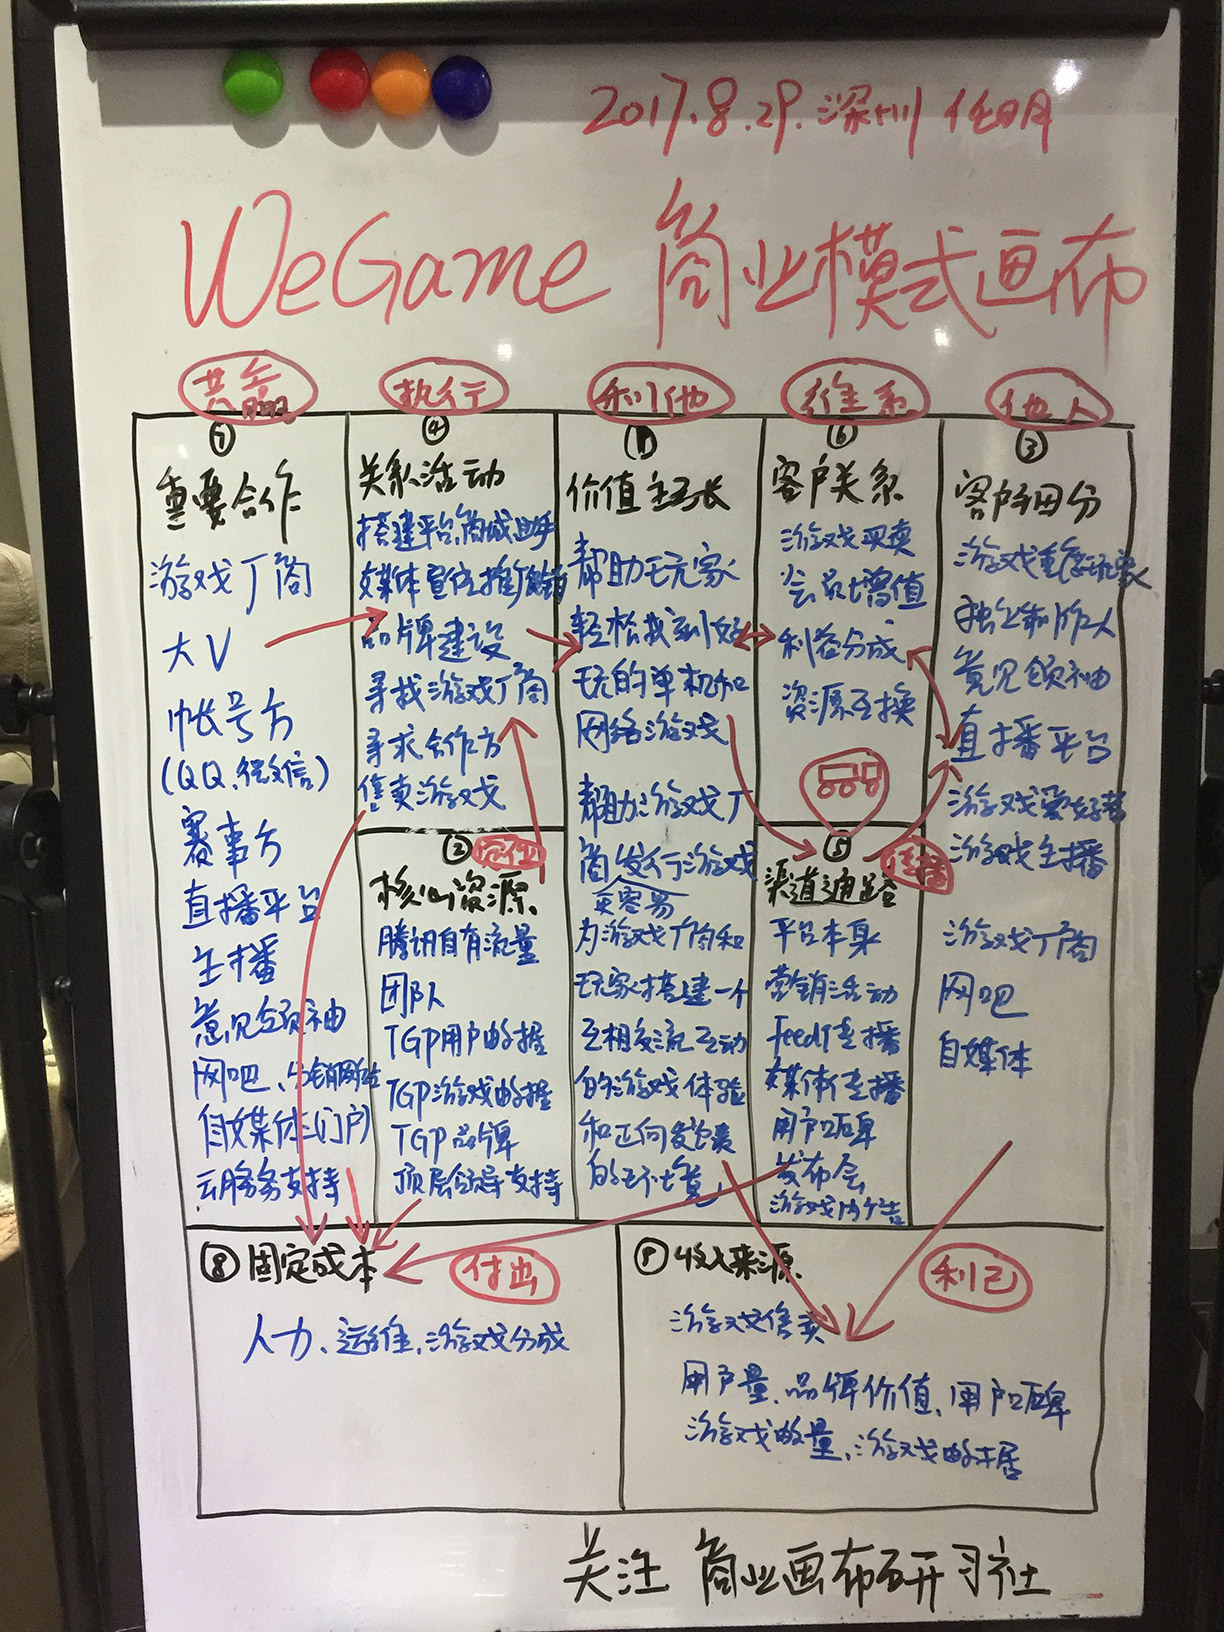 2017.8.29.深圳 任明
WeGame 商业模式画布
共赢
执行
利他
维系
他人
⑦
重要合作
游戏厂商
大V
帐号方
(QQ、微信)
赛事方
直播平台
主播
意见领袖
网吧、分销网站
自媒体(门户)
云服务支持
④
关系活动
搭建平台、商城助手
媒体宣传推广营销
品牌建设
寻找游戏厂商
寻求合作方
售卖游戏
②
定位
核心资源
腾讯自有流量
团队
TGP用户数据
TGP游戏数据
TGP品牌
顶层领导支持
①
价值主张
帮助玩家
轻松找到好
玩的单机和
网络游戏
帮助游戏厂
商发行游戏
更容易
为游戏厂商和
玩家搭建一个
互相交流互动
的游戏体验
和正向发展
的环境
⑥
客户关系
游戏买卖
会员增值
利益分成
资源互换
⑤
传播
渠道通路
平台本身
营销活动
feed传播
媒体传播
用户口碑
发布会
游戏内广告
③
客户细分
游戏重度玩家
独立制作人
意见领袖
直播平台
游戏爱好者
游戏主播
游戏厂商
网吧
自媒体
⑧ 固定成本
付出
人力、运维、游戏分成
⑨ 收入来源
利己
游戏售卖
用户量、品牌价值、用户口碑
游戏数量、游戏数据
关注 商业画布研习社